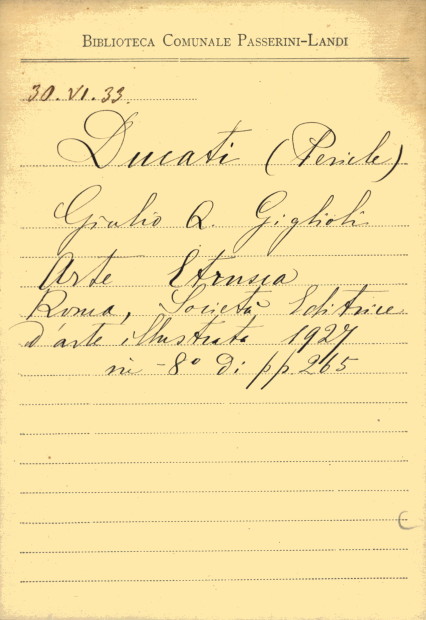 BIBLIOTECA COMUNALE PASSERINI-LANDI
30.VI.33.
Ducati (Pericle)
Giulio Q. Giglioli
Arte Etrusca
Roma, Società Editrice
d'arte illustrata 1927
in-8° di pp 265